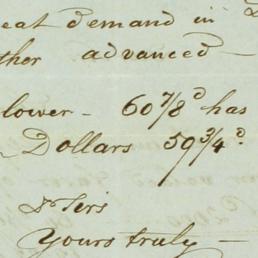 eat demand in
ther advanced —
lower — 60 7/8 d has
Dollars 59 3/4 d.
Dr Sirs
Yours truly —